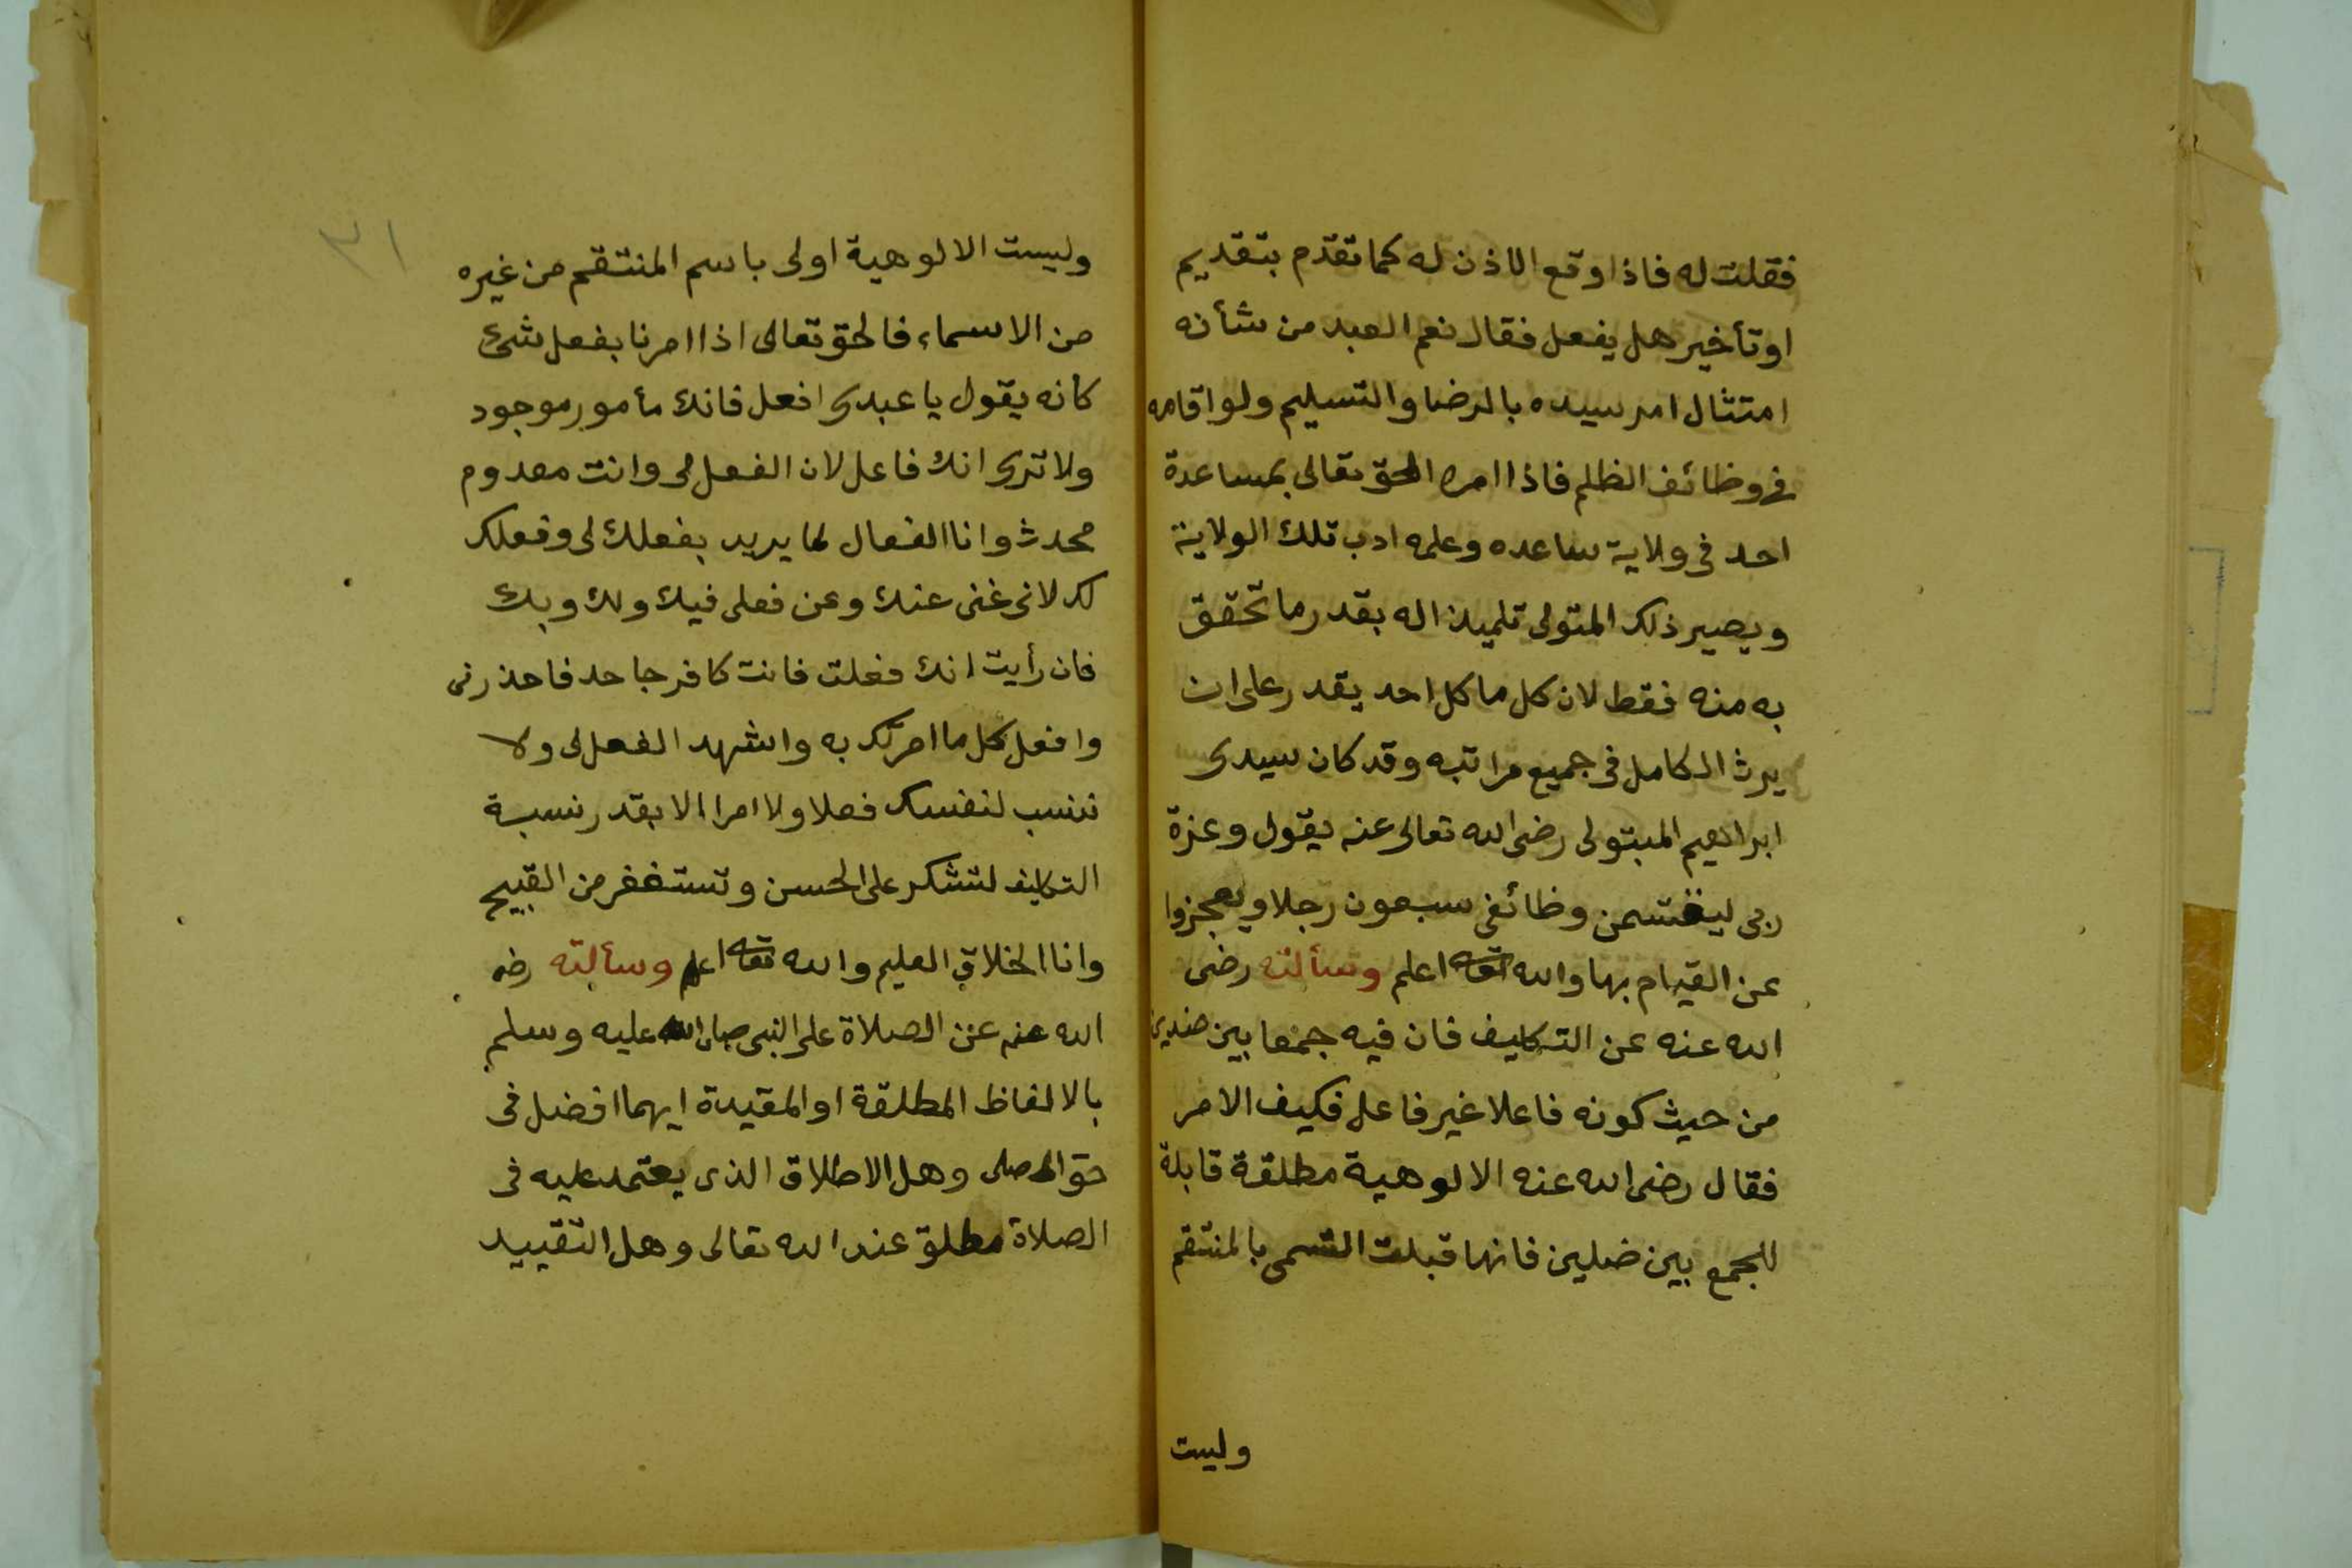 فقلت له فاذا وقع الاذن له كما تقدم بتقديم
او تأخير هل يفعل فقال نعم العبد من شأنه
امتثال امر سيده بالرضا والتسليم ولو اقامه
فى وظائف الظلم فاذا امره الحق تعالى بمساعدة
احد فى ولاية ساعده وعلمه ادب تلك الولاية
ويصير ذلك المتولى تلميذا له بقدر ما تحقق
به منه فقط لان كل ما كل احد يقدر على ان
يرث الكامل فى جميع مراتبه وقد كان سيدى
ابراهيم المبتولى رضى الله تعالى عنه يقول وعزة
ربى ليقتسمن وظائفى سبعون رجلا ويعجزوا
عن القيام بها والله تعه اعلم وسألته رضى
الله عنه عن التكليف فان فيه جمعا بين ضدين
من حيث كونه فاعلا غير فاعل فكيف الامر
فقال رضى الله عنه الالوهية مطلقة قابلة
للجمع بين ضدين فانها قبلت التسمى بالمنتقم
وليست
٣١
وليست الالوهية اولى باسم المنتقم من غيره
من الاسماء فالحق تعالى اذا امرنا بفعل شئ
كأنه يقول يا عبدى افعل فانك مأمور موجود
ولا ترى انك فاعل لان الفعل لى وانت معدوم
محدث وانا الفعال لما يريد بفعلك لى وفعلك
لك لانى غنى عنك وعن فعلى فيك ولك وبك
فان رأيت انك فعلت فانت كافر جاحد فاحذرنى
وافعل كل ما امرتك به واشهد الفعل لى ولا
تنسب لنفسك فعلا ولا امرا الا بقدر نسبة
التكليف لتشكر على الحسن وتستغفر من القبيح
وانا الخلاق العليم والله تعه اعلم وسألته رضى
الله عنه عن الصلاة على النبى صلى الله عليه وسلم
بالالفاظ المطلقة او المقيدة ايهما افضل فى
حق المصلى وهل الاطلاق الذى يعتمد عليه فى
الصلاة مطلق عند الله تعالى وهل التقييد